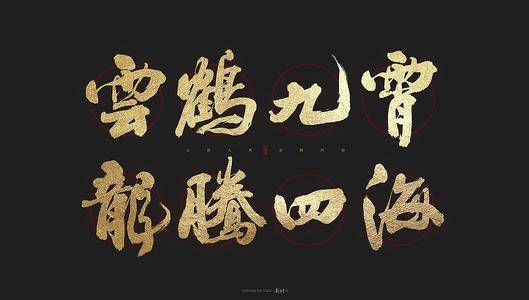 雲鶴九霄
龍騰四海